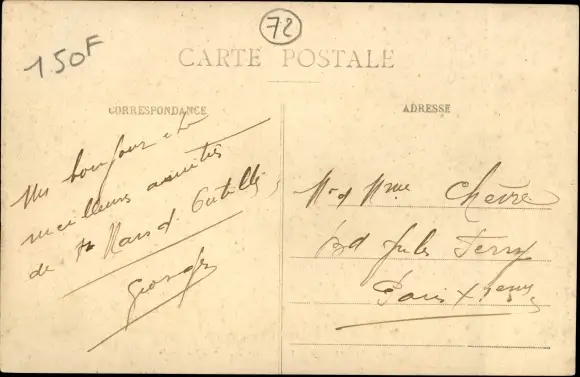 150F
72
CARTE POSTALE
CORRESPONDANCE
ADRESSE
Un bonjour et
meilleures amitiés
de St Mars d'Outillé
Georges
Mr et Mme Chèvre
Bd Jules Ferry
Paris XIème